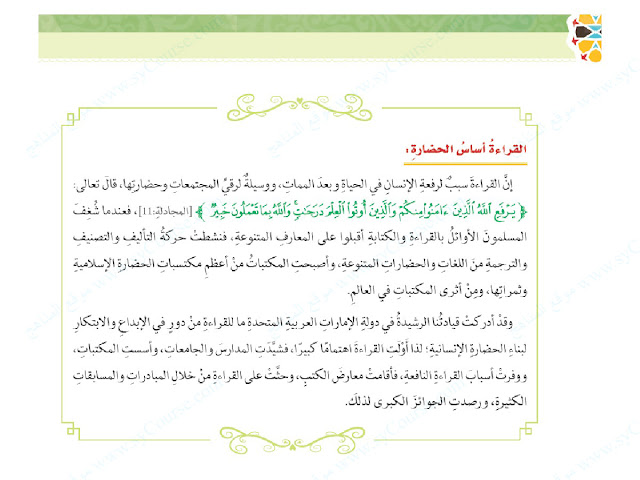 القراءةُ أساسُ الحضارةِ:
إنَّ القراءةَ سببٌ لرفعةِ الإنسانِ في الحياةِ وبعدَ المماتِ، ووسيلةٌ لرقيِّ المجتمعاتِ وحضارتِها، قالَ تعالى:
﴿يَرْفَعِ اللَّهُ الَّذِينَ ءَامَنُوا مِنكُمْ وَالَّذِينَ أُوتُوا الْعِلْمَ دَرَجَاتٍ وَاللَّهُ بِمَا تَعْمَلُونَ خَبِيرٌ﴾ [المجادلة:11]، فعندما شُغِفَ
المسلمونَ الأوائلُ بالقراءةِ والكتابةِ أقبلوا على المعارفِ المتنوعةِ، فنشطتْ حركةُ التأليفِ والتصنيفِ
والترجمةِ منَ اللغاتِ والحضاراتِ المتنوعةِ، وأصبحتِ المكتباتُ منْ أعظمِ مكتسباتِ الحضارةِ الإسلاميةِ
وثمراتِها، ومِنْ أثرى المكتباتِ في العالمِ.
وقدْ أدركتْ قيادتُنا الرشيدةُ في دولةِ الإماراتِ العربيةِ المتحدةِ ما للقراءةِ منْ دورٍ في الإبداعِ والابتكارِ
لبناءِ الحضارةِ الإنسانيةِ؛ لذا أوْلَتِ القراءةَ اهتمامًا كبيرًا، فشيَّدَتِ المدارسَ والجامعاتِ، وأسستِ المكتباتِ،
ووفرتْ أسبابَ القراءةِ النافعةِ، فأقامتْ معارضَ الكتبِ، وحثَّتْ على القراءةِ منْ خلالِ المبادراتِ والمسابقاتِ
الكثيرةِ، ورصدتِ الجوائزَ الكبرى لذلكَ.
موقع المناهج www.syCourse.com